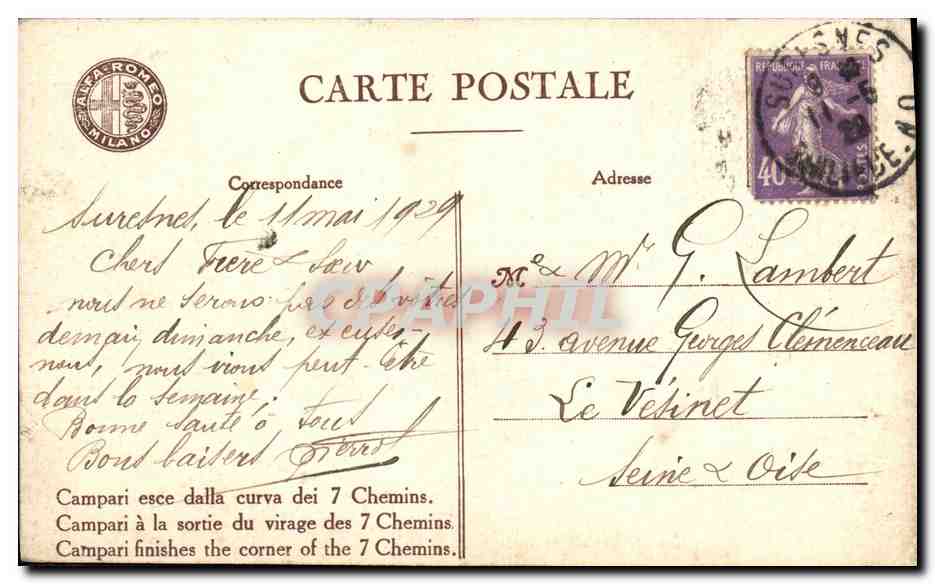 ALFA-ROMEO
MILANO
CARTE POSTALE
REPUBLIQUE FRANCAISE
40
SURESNES
Correspondance
Adresse
Suresnes, le 11 mai 1929
Chers Frère & Sœur
nous ne serons pas des vôtres
demain, dimanche, excusez-
nous, nous irons peut-être
dans la semaine.
Bonne santé à tous
Bons baisers Pierre
Campari esce dalla curva dei 7 Chemins.
Campari à la sortie du virage des 7 Chemins.
Campari finishes the corner of the 7 Chemins.
M e & Mr G. Lambert
43 avenue Georges Clémenceau
Le Vésinet
Seine & Oise
CPAPHIL